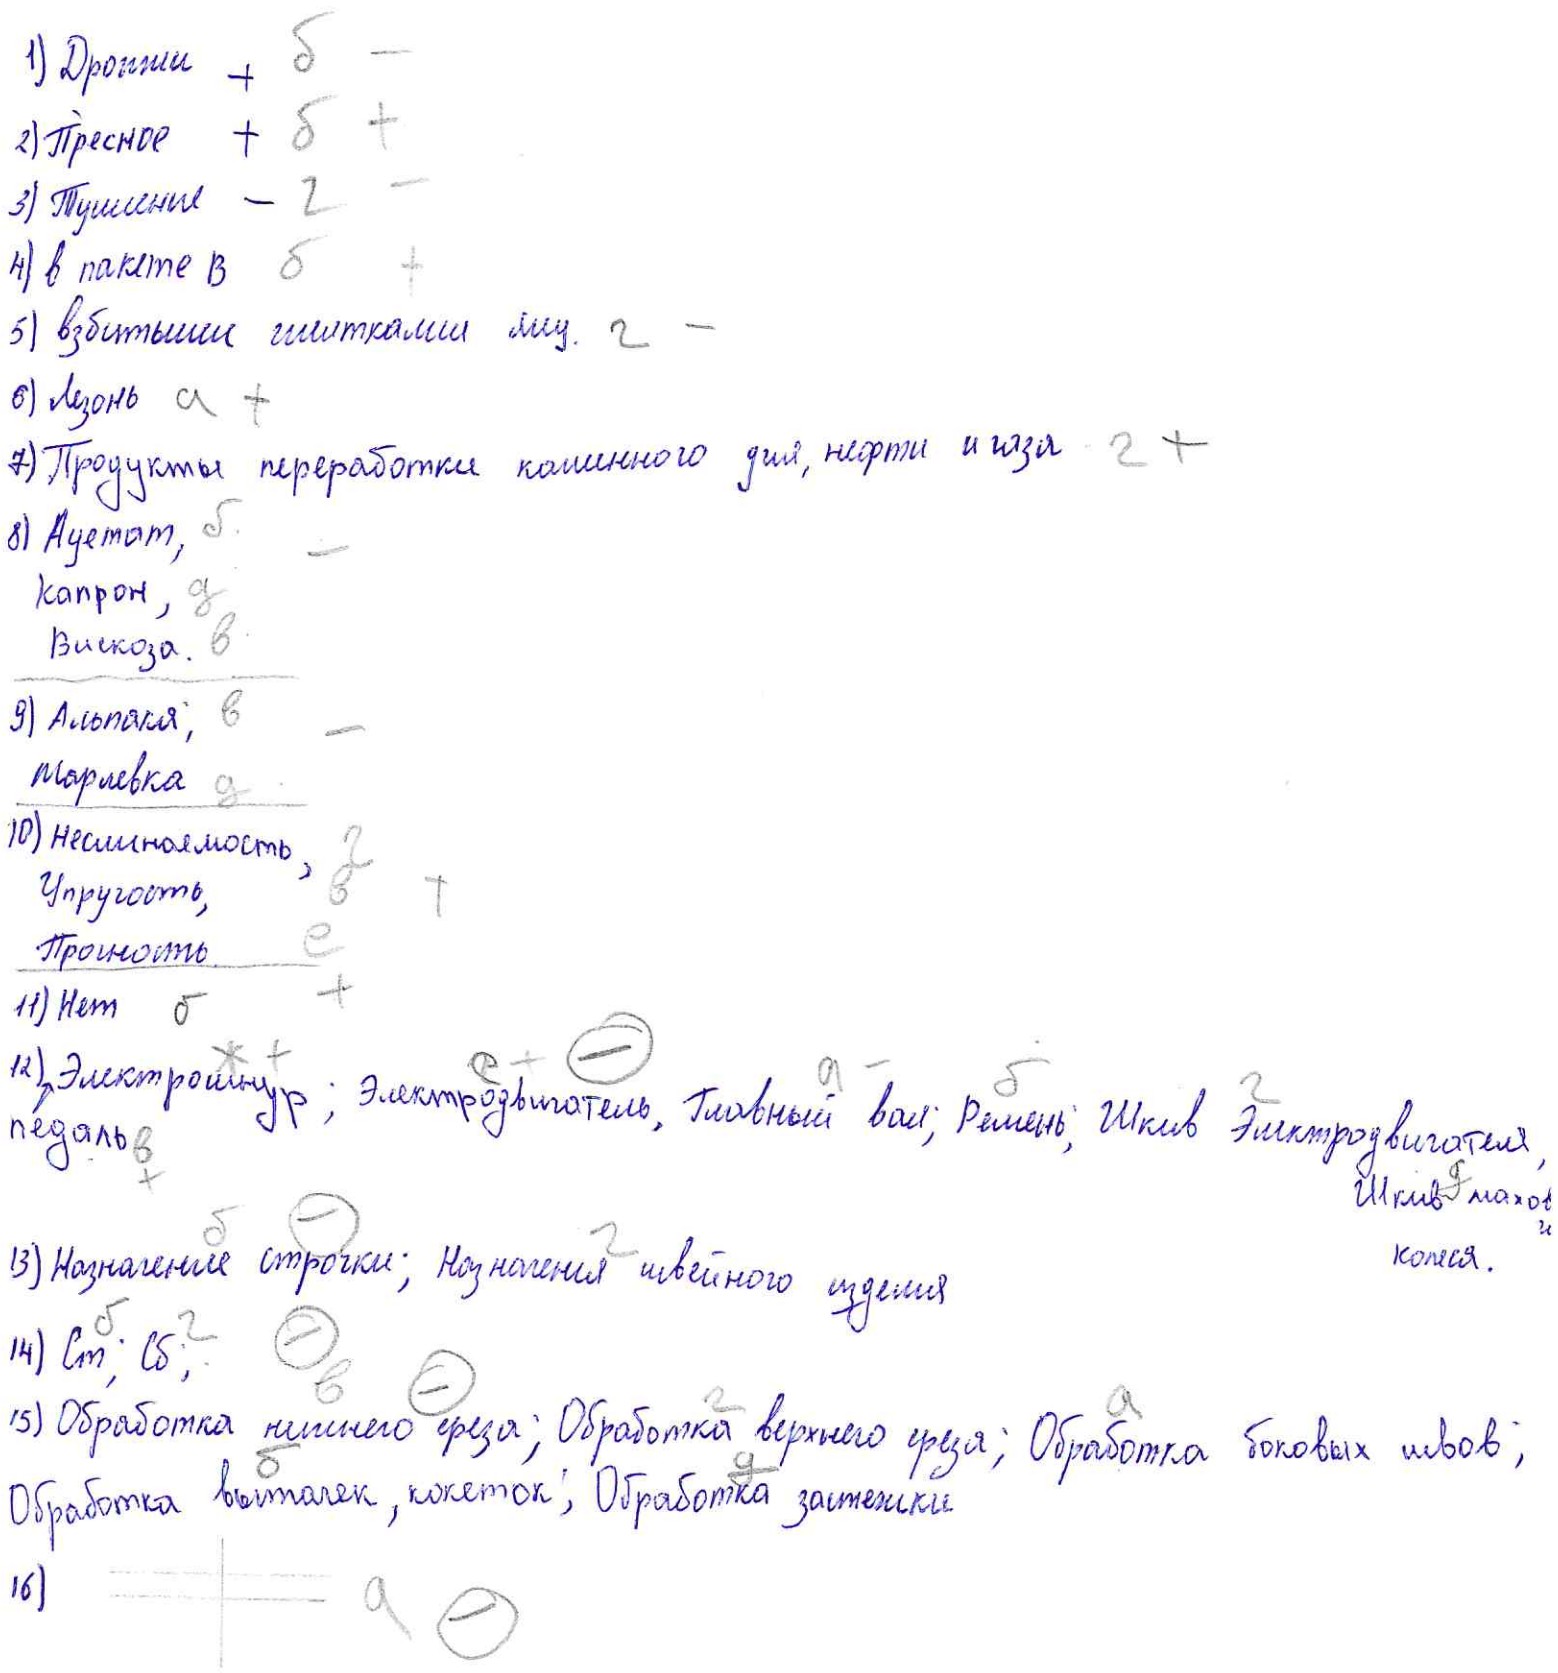 1) Дрожжи + б −
2) Пресное + б +
3) Тушение − г −
4) в пакете В б +
5) взбитыми желтками яиц. г −
6) Лезонь а +
7) Продукты переработки каменного угля, нефти и газа г +
8) Ацетат, б −
Капрон, д
Вискоза. в
9) Альпака; в −
Марлевка д
10) Несминаемость, г
Упругость, в +
Прочность е
11) Нет б +
ж + е + − а − б г
12) Электрошнур; Электродвигатель, Главный вал; Ремень; Шкив Электродвигателя,
педаль в +
Шкив д махов
колеса.
б − г
13) Назначение строчки; Назначения швейного изделия
б г −
14) Ст; Сб;
в − г а
15) Обработка нижнего среза; Обработка верхнего среза; Обработка боковых швов;
б д
Обработка вытачек, кокеток; Обработка застежки
16) а −